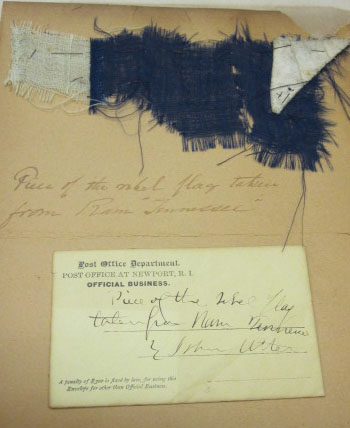 Piece of the rebel flag taken
from Ram "Tennessee"
Post Office Department.
POST OFFICE AT NEWPORT, R. I.
OFFICIAL BUSINESS.
Piece of the rebel flag
taken from Ram Tennessee
by John
A penalty of $300 is fixed by law, for using this
Envelope for other than Official Business.